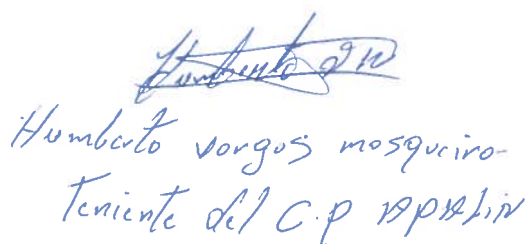 Humberto
Humberto vargas mosqueiro
Teniente del C.P APALIN